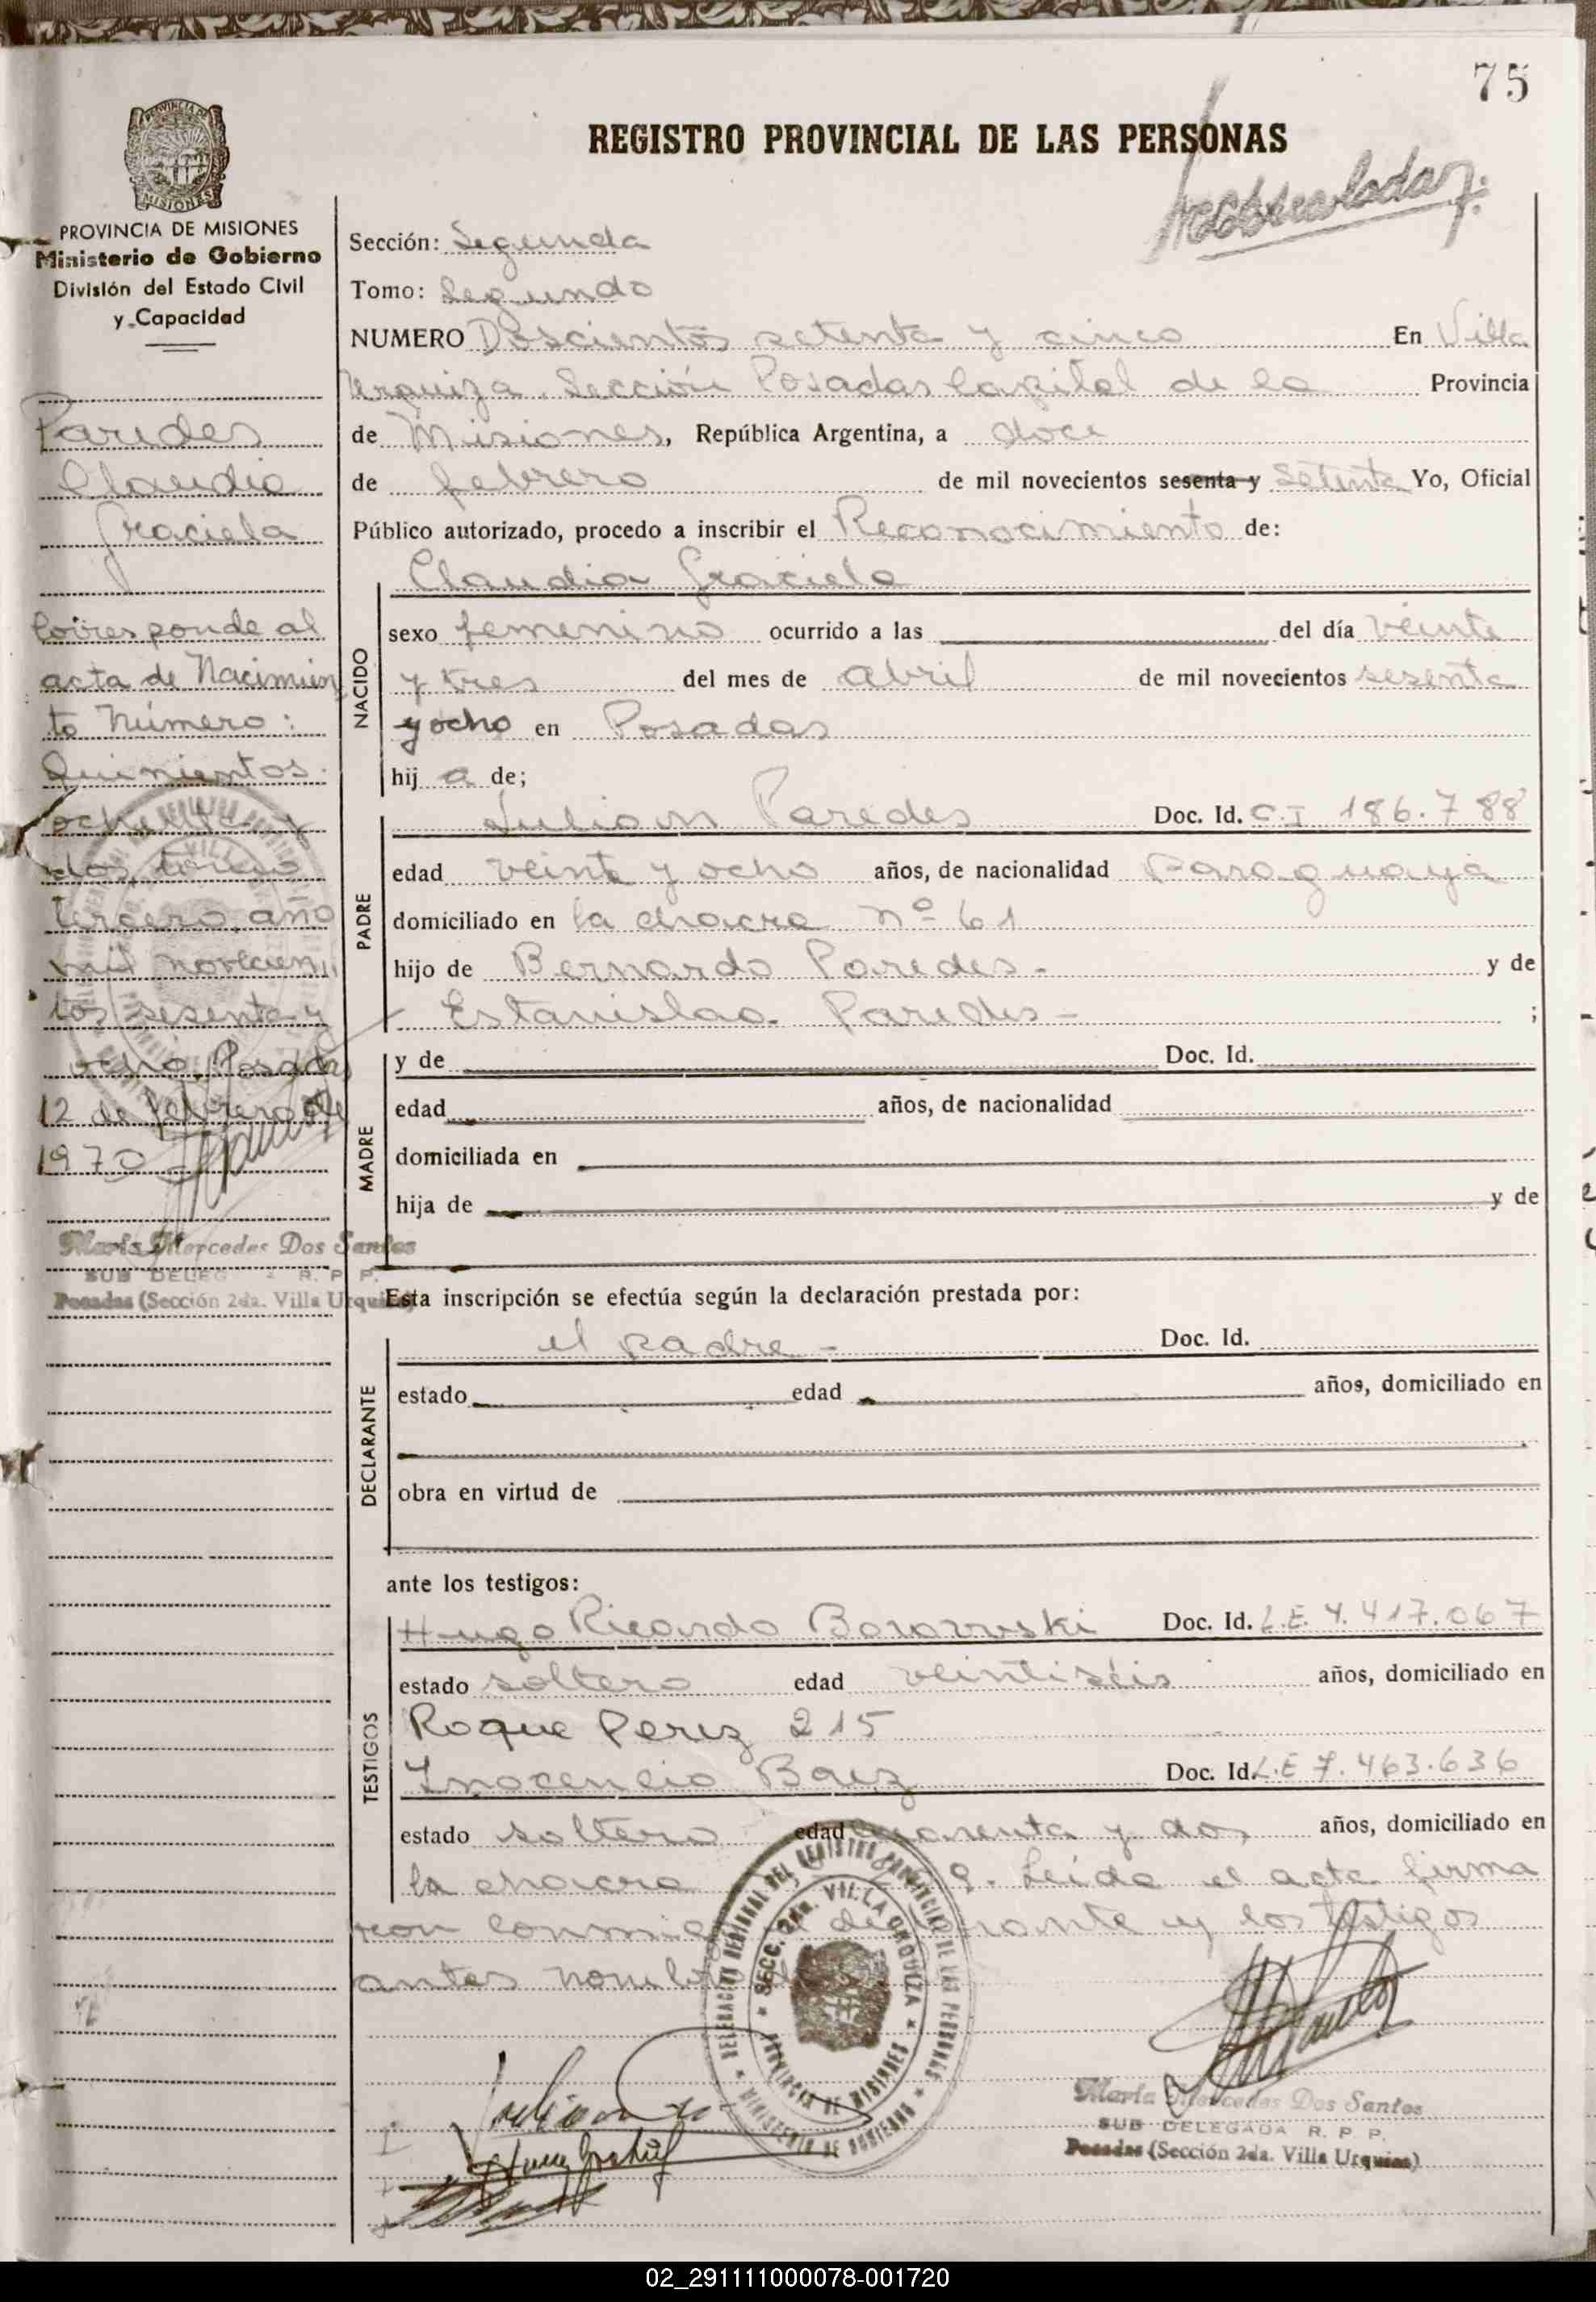 75
REGISTRO PROVINCIAL DE LAS PERSONAS
PROVINCIA DE MISIONES
Ministerio de Gobierno
División del Estado Civil
y Capacidad
Paredes
Claudia
Graciela
Corresponde al
acta de Nacimien
to Número:
Quinientos
ochenta y
dos, tomo
tercero, año
mil novecien
tos sesenta y
ocho. Posadas
12 de febrero de
1970
María Mercedes Dos Santos
SUB DELEG R. P. P.
Posadas (Sección 2da. Villa Urquiza)
Sección: Segunda
Tomo: Segundo
NUMERO Doscientos setenta y cinco En Villa
Urquiza. Sección Posadas Capital de la Provincia
de Misiones, República Argentina, a doce
de febrero de mil novecientos sesenta y setenta Yo, Oficial
Público autorizado, procedo a inscribir el Reconocimiento de:
NACIDO
Claudia Graciela
sexo femenino ocurrido a las del día veinte
y tres del mes de abril de mil novecientos sesenta
y ocho en Posadas
hij a de;
PADRE
Julian Paredes Doc. Id. C.I 186.788
edad veinte y ocho años, de nacionalidad Paraguaya
domiciliado en la chacra nº 61
hijo de Bernardo Paredes - y de
Estanislaa Paredes - ;
MADRE
y de Doc. Id.
edad años, de nacionalidad
domiciliada en
hija de y de
Esta inscripción se efectúa según la declaración prestada por:
DECLARANTE
el padre - Doc. Id.
estado edad años, domiciliado en
obra en virtud de
ante los testigos:
TESTIGOS
Hugo Ricardo Borowski Doc. Id. L.E. 7.417.067
estado soltero edad veintiséis años, domiciliado en
Roque Perez 215
Inocencio Baez Doc. Id. L.E 7.463.636
estado soltero edad cuarenta y dos años, domiciliado en
la chacra 9. Leída el acta firma
ron conmigo el declarante y los testigos
antes nombrados
DELEGACION REGIONAL DEL REGISTRO PROVINCIAL DE LAS PERSONAS
SECC. 2da. VILLA URQUIZA
PROVINCIA DE MISIONES
MINISTERIO DE GOBIERNO
María Mercedes Dos Santos
SUB DELEGADA R. P. P.
Posadas (Sección 2da. Villa Urquiza)
02_291111000078-001720